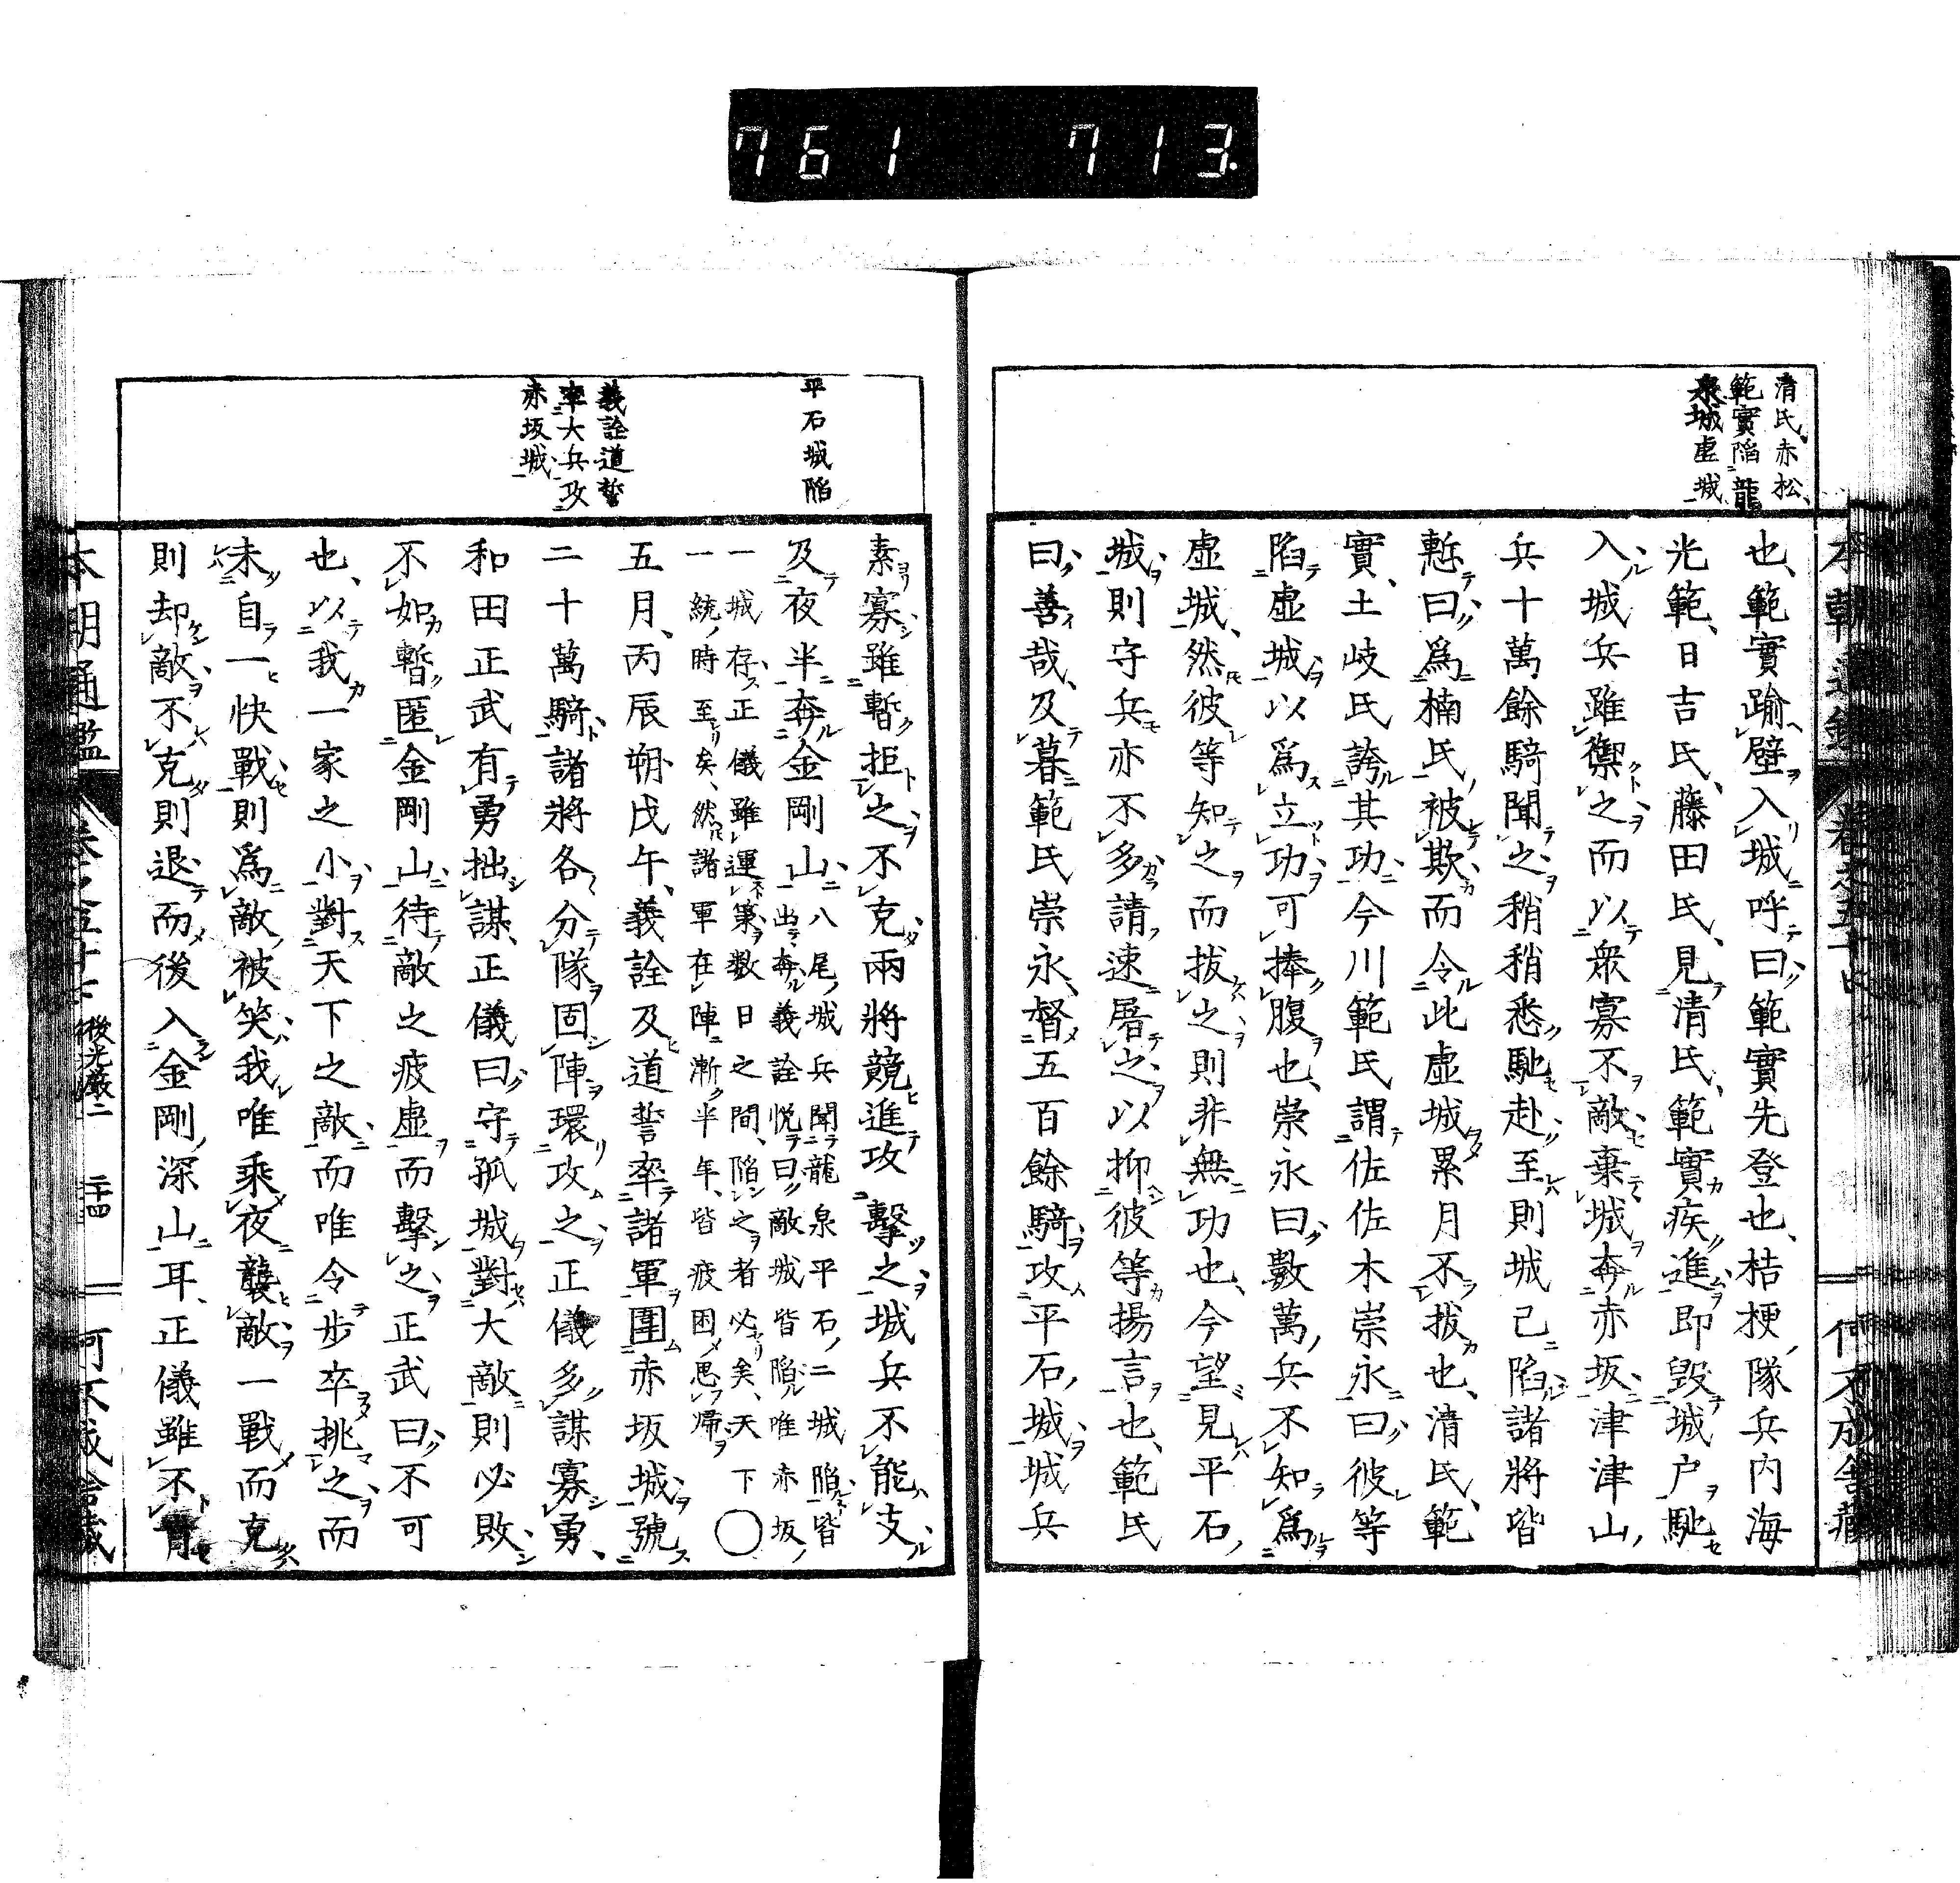 761 713
清氏、赤松、
範實陷龍
泉城虚城
也、範實踰壁入城呼曰範實先登也、桔梗隊兵内海
光範、日吉氏、藤田氏、見清氏、範實疾進即毀城戸馳
入城兵雖禦之而以衆寡不敵棄城奔赤坂、津津山
兵十萬餘騎聞之稍稍悉馳赴至則城已陷諸將皆
慙曰爲楠氏被欺而令此虚城累月不拔也、清氏、範
實、土岐氏誇其功、今川範氏謂佐佐木崇永曰彼等
陷虚城以爲立功可捧腹也、崇永曰數萬兵不知爲
虚城、然彼等知之而拔之則非無功也、今望見平石
城則守兵亦不多請速屠之以抑彼等揚言也、範氏
曰善哉、及暮範氏崇永、督五百餘騎攻平石城城兵
平石城陷
義詮道誓
率大兵攻
赤坂城
素寡雖暫拒之不克兩將競進攻擊之城兵不能支
及夜半奔金剛山
八尾城兵聞龍泉平石二城陷皆
出奔義詮悦曰敵城皆陷唯赤坂
一城存正儀雖運籌數日之間、陷之者必矣、天下
一統時至矣、然諸軍在陣漸半年、皆疲困思歸
○
五月、丙辰朔戊午、義詮及道誓率諸軍圍赤坂城號
二十萬騎諸將各分隊固陣環攻之正儀多謀寡勇、
和田正武有勇拙謀、正儀曰守孤城對大敵則必敗
不如暫匿金剛山待敵之疲虚而擊之正武曰不可
也、以我一家之小對天下之敵而唯令步卒挑之而
未自一快戰則爲敵被笑我唯乘夜襲敵一戰而克
則却敵不克則退而後入金剛深山耳、正儀雖不肯
本朝通鑑
後光嚴二
二十四